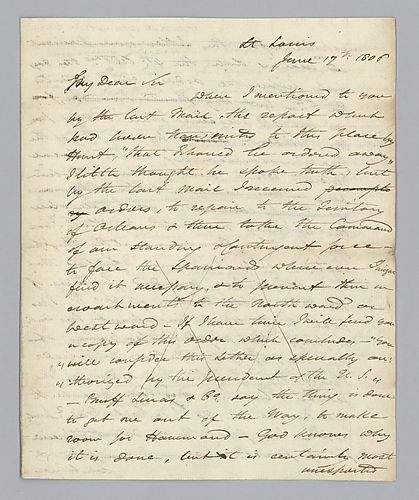 St. Louis
June 17th 1806
My Dear Sir
when I mentioned to you
by the last Mail, the report which
had been transmitted to this place by
Hunt, "that I should be ordered away,"
I little thought he spoke truth, but
by the last mail I received
orders, to repair to the Territory
of Orleans & there to take the Command
of our standing & contingent force —
to face the Spaniards where ever I may
find it necessary, & to prevent their in
croachments to the North ward or
West ward — If I have time I will send you
a copy of this order which concludes — "You
"will consider this Letter, as specially au
"thorized by the president of the U. S."
— Bruff Lucas & Co. say the thing is done
to get me out of the Way, to make
room for Hammond — God knows why
it is done, but it is certainly most
unexpected